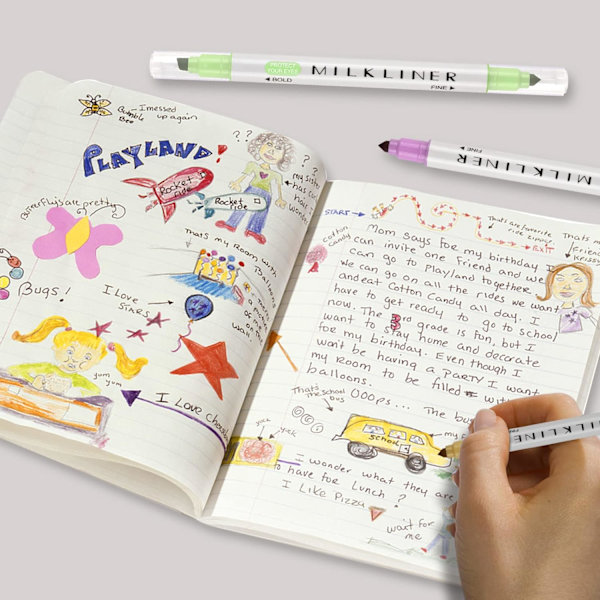 PROTECT
YOUR EYES
MILKLINER
BOLD
FINE
FINE
MILKLINER
Bumble
Bee
-I messed
up again
PLAYLAND!
? ?
? ?
my sister
has
hair I
wonder
Rocket
ride
Rocket
ride
Butterflijs are pretty
Thats my Room with
Balloons
on the
wall
Bugs!
I Love
STARS
yum
yum
I Love
START
Thats are favorite
ride
EXIT
Thats my
friend
Krissy
cotton
candy
Mom says for my birthday I
can invite one friend and we
can go to Playland together
we can go on all the rides we want
and eat Cotton Candy all day. I
have to get ready to go to school
now. The 3rd grade is fun, but I
want to stay home and decorate
for my birthday. Even though I
won't be having a PARTY I want
my Room to be filled with
balloons.
OOOps... The bus
Thats the school
bus
SCHOOL
my
yek
yek
I wonder what they are
to have for Lunch?
I Like Pizza
wait for
me
MILKLINER